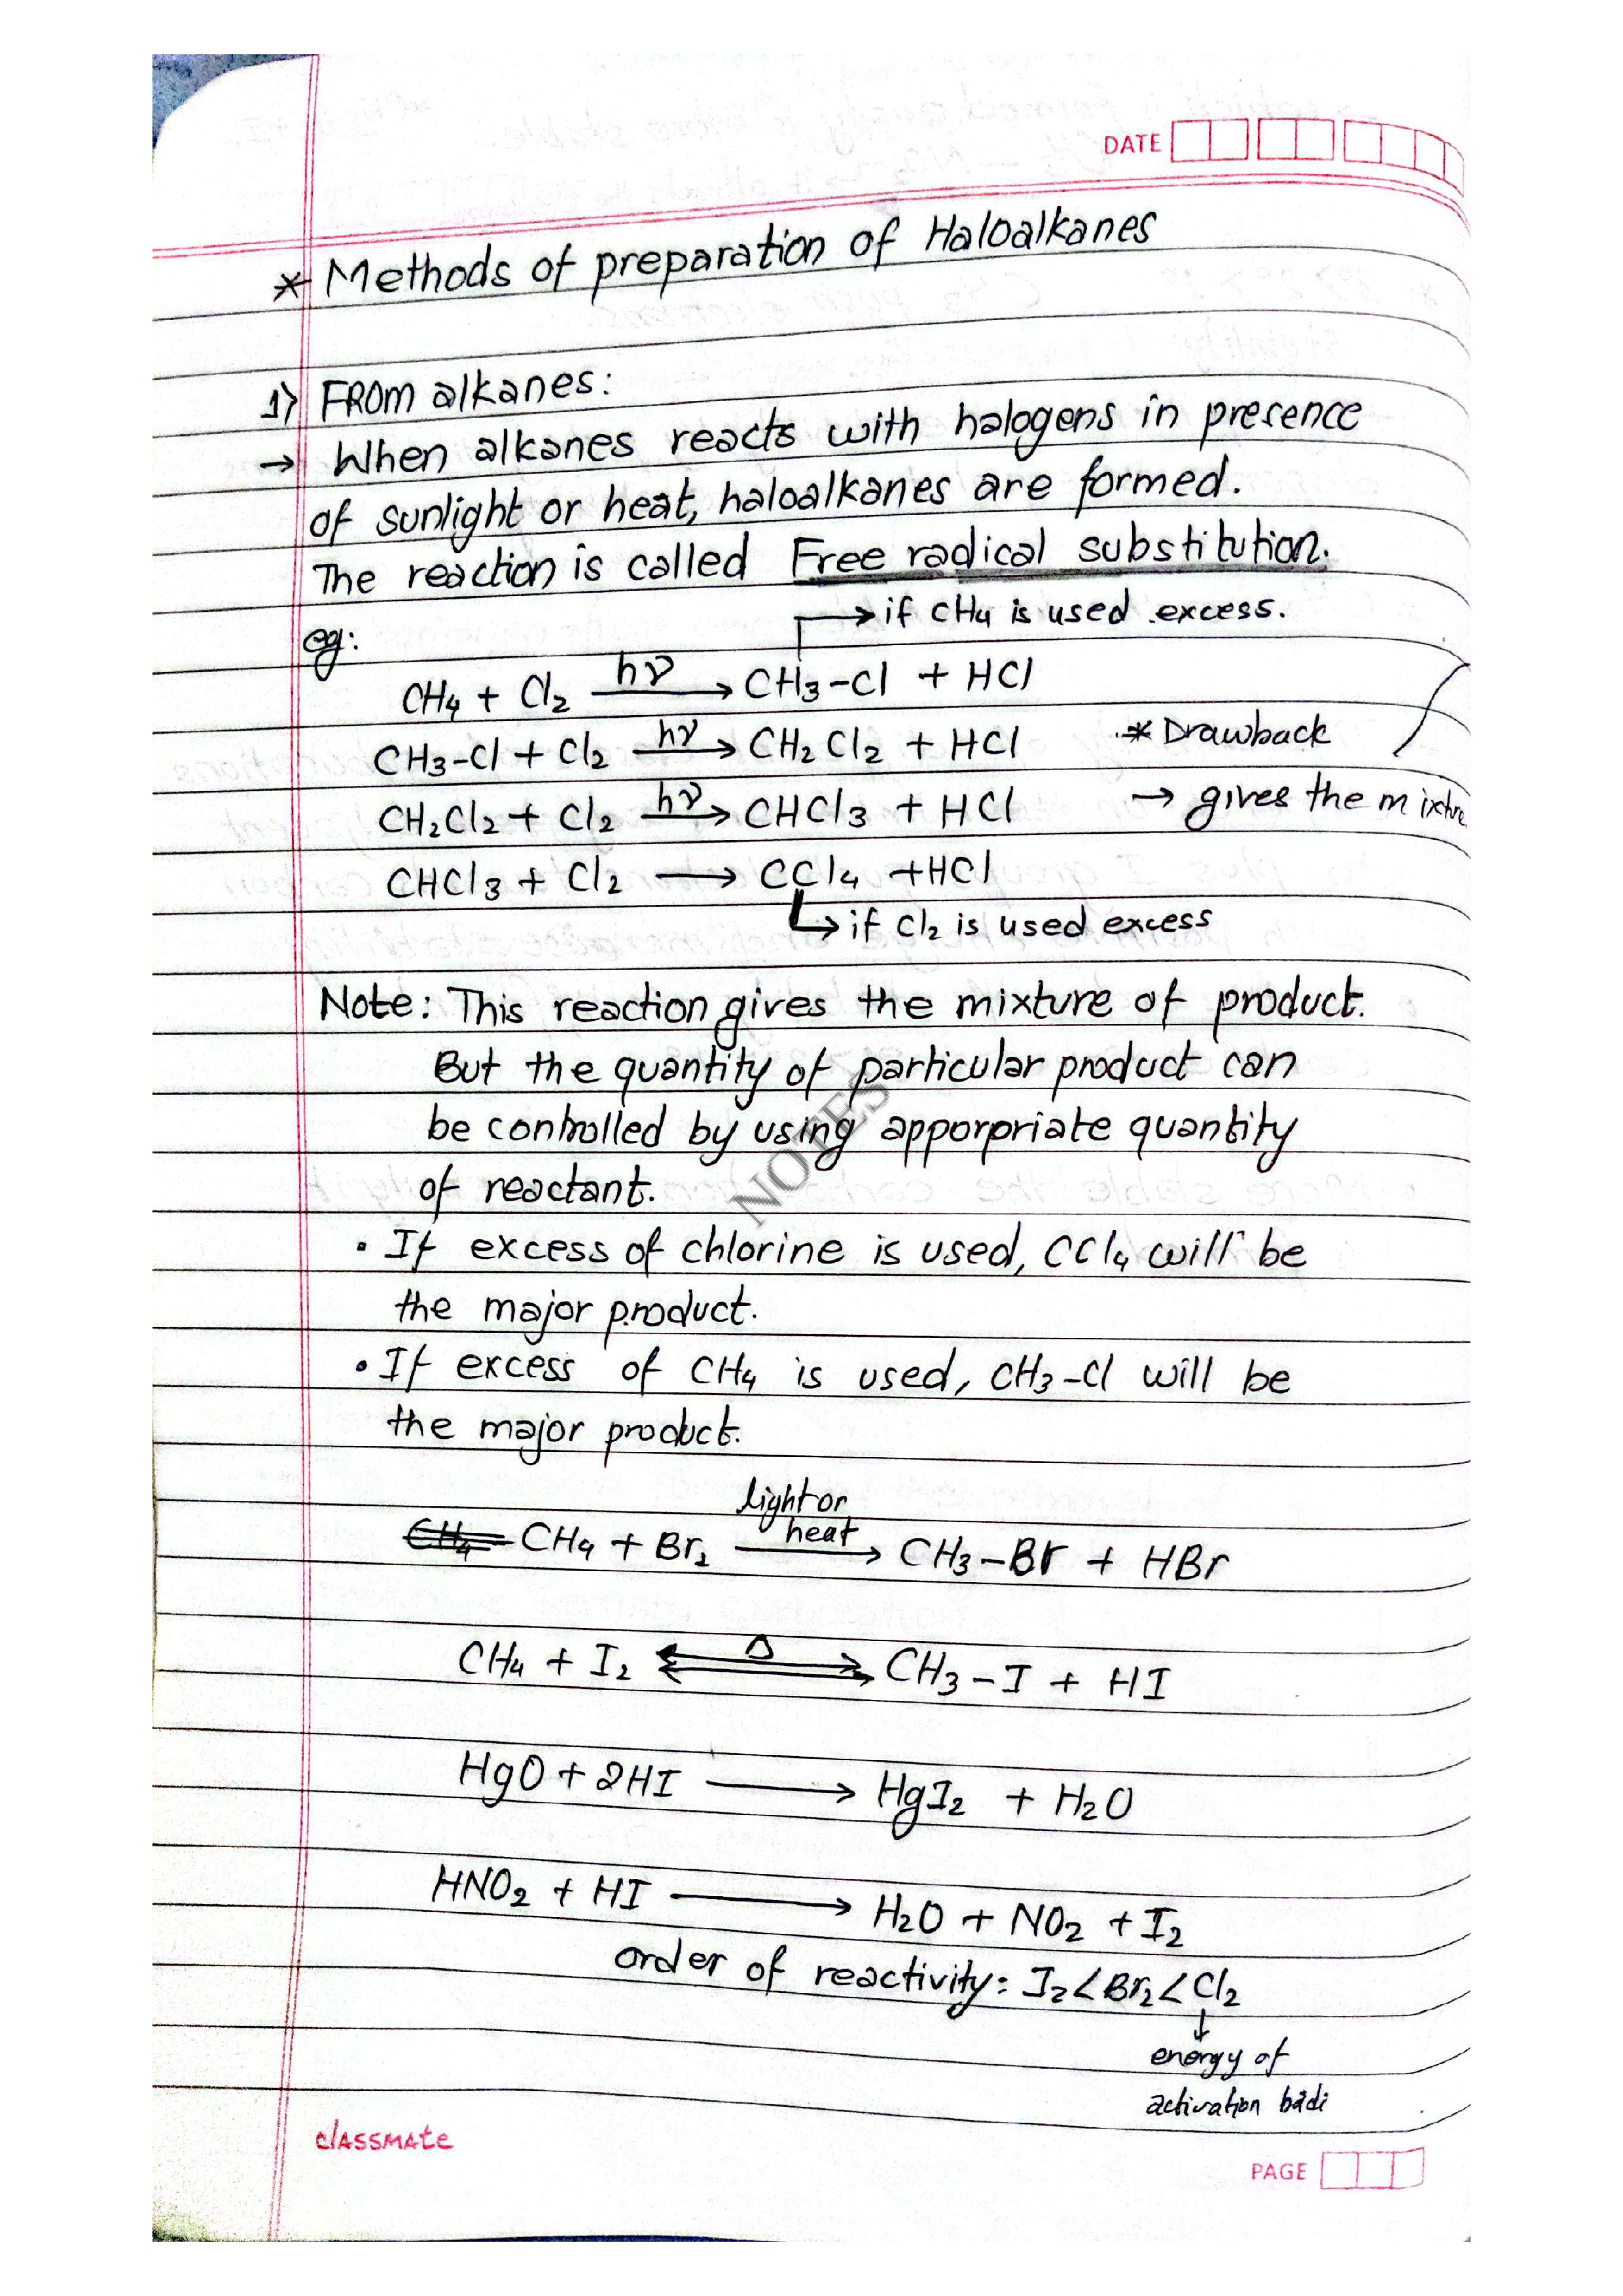 DATE
* Methods of preparation of Haloalkanes
1) FROM alkanes:
→ When alkanes reacts with halogens in presence
of sunlight or heat, haloalkanes are formed.
The reaction is called Free radical substitution.
→ if CH4 is used excess.
eg:
CH4 + Cl2 —hν→ CH3-Cl + HCl
CH3-Cl + Cl2 —hν→ CH2Cl2 + HCl * Drawback
CH2Cl2 + Cl2 —hν→ CHCl3 + HCl → gives the mixture
CHCl3 + Cl2 → CCl4 + HCl
↳ if Cl2 is used excess
Note: This reaction gives the mixture of product.
But the quantity of particular product can
be controlled by using apporpriate quantity
of reactant.
• If excess of chlorine is used, CCl4 will be
the major product.
• If excess of CH4 is used, CH3-Cl will be
the major product.
light or
heat
CH4 CH4 + Br2 → CH3-Br + HBr
CH4 + I2 ⇌ Δ CH3-I + HI
HgO + 2HI → HgI2 + H2O
HNO2 + HI → H2O + NO2 + I2
order of reactivity: I2 < Br2 < Cl2
↓
energy of
activation badi
NOTES
classmate
PAGE